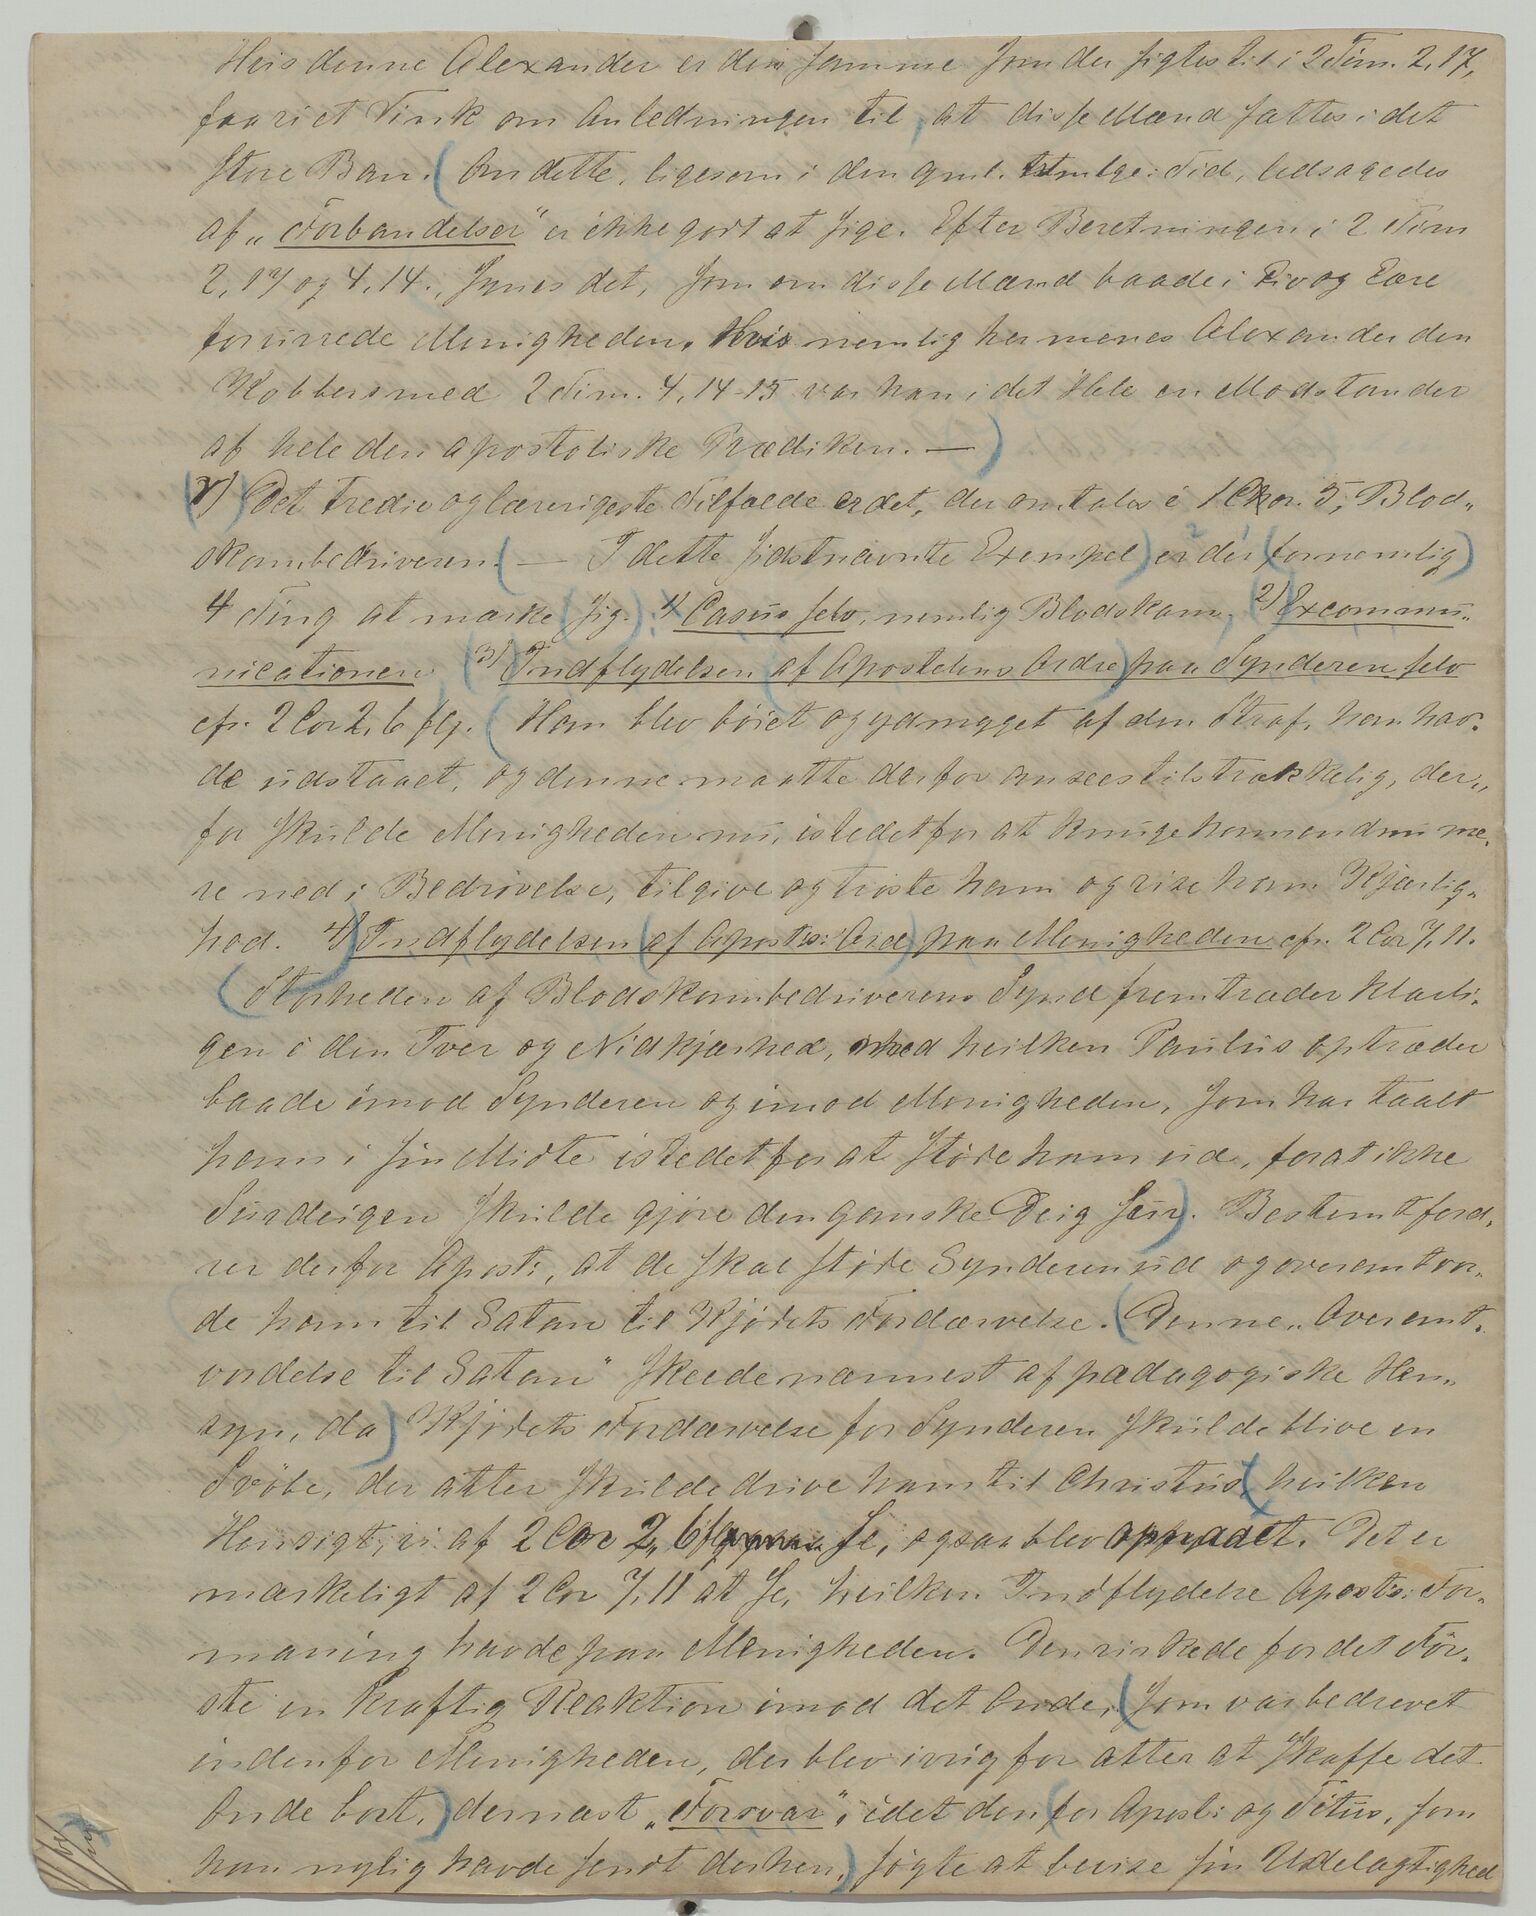 Hvis denne Alexander er den samme som der sigtes til i 2 Tim. 2,17,
faar vi et Vink om Anledningen til, at disse Mænd sattes i det
store Ban. (Om dette, ligesom i den gml. tstmtlge: Tid, ledsagedes
af „Forbandelser“ er ikke godt at sige. Efter Beretningen i 2 Tim
2,17 og 4,14., synes det, som om disse Mænd baade i Liv og Lære
forurrede Menigheden. Hvis nemlig her menes Alexander den
Kobbersmed 2 Tim. 4,14-15 var han i det Hele en Modstander
af hele den apostoliske Prædiken. —)
(γ) Det tredie og lærerigeste Tilfælde er det, der omtales i 1 Chor. 5, Blod„
skambedriveren. (— I dette sidstnævnte Exempel) er der (fornemlig)
4 Ting at mærke (sig.) 1) Casus selv, nemlig Blodskam, 2) Excommu„
nicationen (3) Indflydelsen af Apostelens Ordre) paa Synderen selv
cfr. 2 Cor 2,6 flg. (Han blev bøiet og ydmyget af den Straf, han hav„
de udstaaet, og denne maatte derfor ansees tilstrækkelig, der„
for skulde Menigheden nu, istedetfor at knuge ham endnu me„
re ned i Bedrøvelse, tilgive og trøste ham og vise ham Kjærlig„
hed. 4) Indflydelsen (af Aposts: Ord) paa Menigheden cfr. 2 Cor 7,11.
(Storheden af Blodskambedriverens Synd fremtræder klarli„
gen i den Iver og Nidkjærhed, med hvilken Paulus optræder
baade imod Synderen og imod Menigheden, som har taalt
ham i sin Midte istedetfor at støde ham ud, forat ikke
Surdeigen skulde gjøre den ganske Deig suur). Bestemt ford„
rer derfor Aposti, at de skal støde Synderen ud og overantvor„
de ham til Satan til Kjødets Fordærvelse. (Denne „Overant„
vordelse til Satan“ skeede nærmest af pædagogiske Hen„
syn, da) Kjødets Fordærvelse for Synderen skulde blive en
Svøbe, der atter skulde drive ham til Christus, (hvilken
Hensigt, vi af 2 Cor 2, 6 flg se, ogsaa blev opnaaet. Det er
mærkeligt af 2 Cor 7,11 at se, hvilken Indflydelse Aposts: For„
maning havde paa Menigheden. Den virkede for det Før„
ste en kraftig Reaktion imod det Onde, (som var bedrevet
indenfor Menigheden, der blev ivrig for atter at skaffe det
Onde bort,) dernæst „Forsvar“, idet den (for Apostl: og Titus, som
han nylig havde sendt derhen,) søgte at bevise sin Udelagtighed